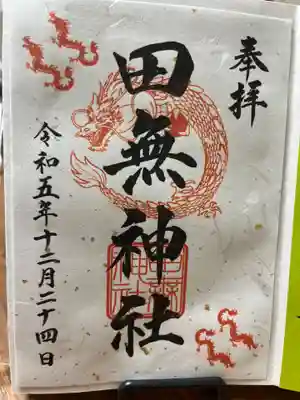 奉拝
田無神社
令和五年十二月二十四日